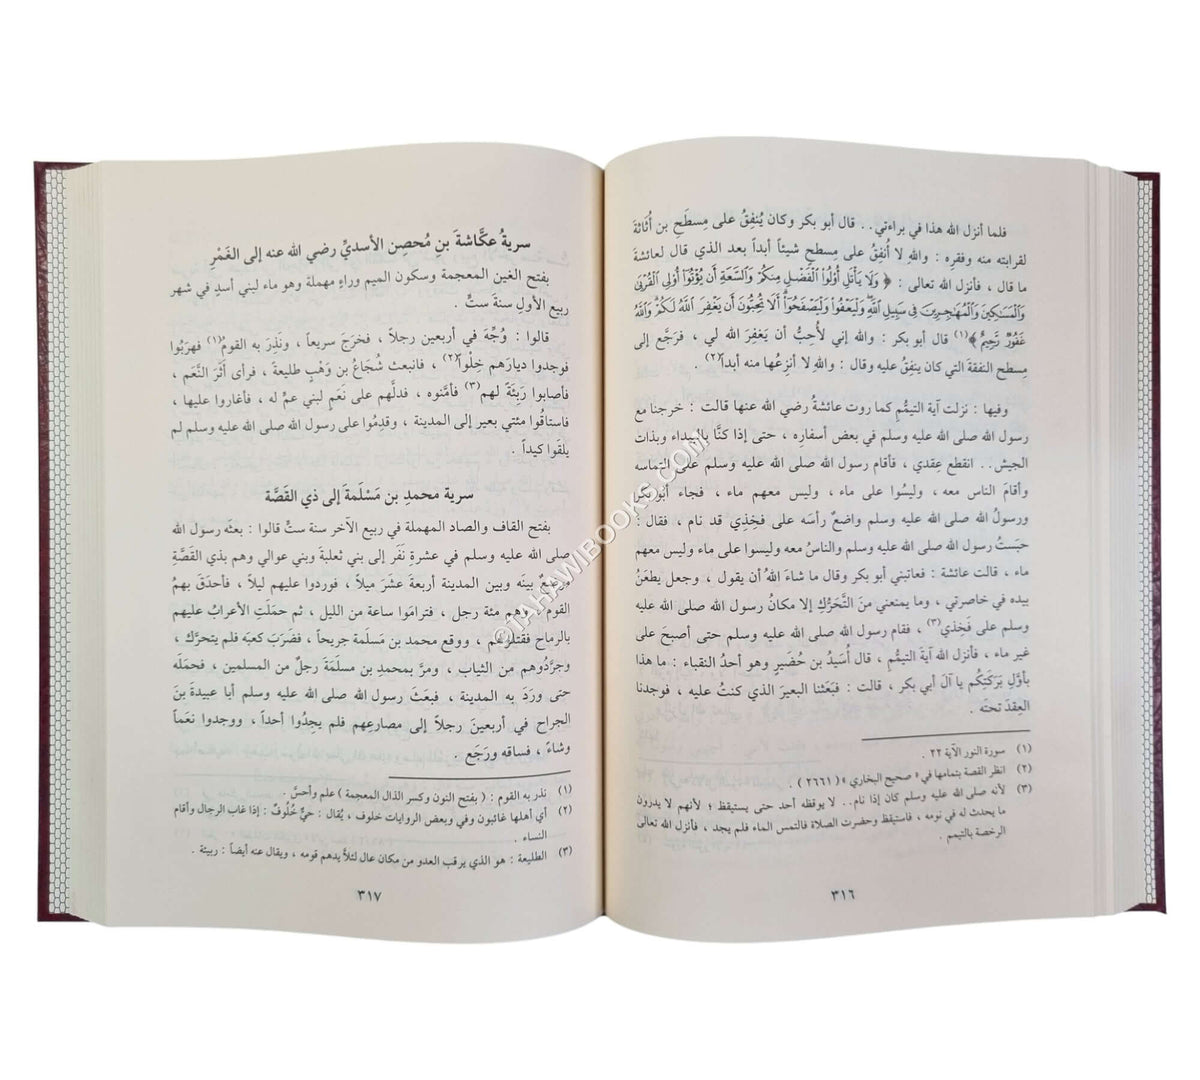 فلما أنزل الله هذا في براءتي.. قال أبو بكر وكان يُنفِقُ على مِسطَحِ بن أُثَاثَةَ
لقرابته منه وفقره : واللهِ لا أُنفِقُ على مِسطحٍ شيئاً أبداً بعد الذي قال لعائشة
ما قال ، فأنزل الله تعالى : ﴿ وَلَا يَأْتَلِ أُوْلُواْ ٱلْفَضْلِ مِنكُمْ وَٱلسَّعَةِ أَن يُؤْتُوٓاْ أُوْلِى ٱلْقُرْبَىٰ
وَٱلْمَسَٰكِينَ وَٱلْمُهَٰجِرِينَ فِى سَبِيلِ ٱللَّهِ وَلْيَعْفُواْ وَلْيَصْفَحُوٓاْ أَلَا تُحِبُّونَ أَن يَغْفِرَ ٱللَّهُ لَكُمْ وَٱللَّهُ
غَفُورٌ رَّحِيمٌ ﴾(١) قال أبو بكر : والله إني لأُحِبُّ أن يَغفِرَ الله لي ، فرَجَّع إلى
مِسطح النفقةَ التي كان ينفِق عليه وقال : واللهِ لا أنزِعُها منه أبداً(٢) .
وفيها : نزلت آية التيمُّم كما روت عائشةُ رضي الله عنها قالت : خرجنا مع
رسول الله صلى الله عليه وسلم في بعض أسفاره ، حتى إذا كنَّا بالبيداء وبذات
الجيش.. انقطع عِقدي ، فأقام رسول الله صلى الله عليه وسلم على التماسه
وأقامَ الناس معه ، وليسُوا على ماء ، وليس معهم ماء ، فجاء أبو بكر
ورسولُ الله صلى الله عليه وسلم واضعٌ رأسَه على فَخِذي قد نام ، فقال :
حبَستِ رسول الله صلى الله عليه وسلم والناسُ معه وليسوا على ماءٍ وليس معهم
ماء ، قالت عائشة : فعاتبني أبو بكر وقال ما شاءَ اللهُ أن يقول ، وجعل يطعَنُ
بيده في خاصرتي ، وما يمنعني من التَّحَرُّكِ إلا مكانُ رسول الله صلى الله عليه
وسلم على فَخِذي(٣) ، فقام رسول الله صلى الله عليه وسلم حتى أصبحَ على
غير ماء ، فأنزل الله آيةَ التيمُّم ، قال أُسَيدُ بن حُضَيرٍ وهو أحدُ النقباء : ما هذا
بأوَّلِ بَرَكَتِكُم يا آلَ أبي بكر ، قالت : فبَعَثْنا البعيرَ الذي كنتُ عليه ، فوجدنا
العِقدَ تحته .
(١) سورة النور الآية ٢٢ .
(٢) انظر القصة بتمامها في « صحيح البخاري » ( ٢٦٦١ ) .
(٣) لأنه صلى الله عليه وسلم كان إذا نام.. لا يوقظه أحد حتى يستيقظ ؛ لأنهم لا يدرون
ما يحدث له في نومه ، فاستيقظ وحضرت الصلاة فالتمس الماء فلم يجد ، فأنزل الله تعالى
الرخصة بالتيمم .
٣١٦
سريةُ عكَّاشةَ بن مُحصِن الأسديِّ رضي الله عنه إلى الغَمْرِ
بفتح الغين المعجمة وسكون الميم وراءٍ مهملة وهو ماء لبني أسدٍ في شهر
ربيع الأولِ سنةَ ستٍّ .
قالوا : وُجِّهَ في أربعين رجلاً ، فخرَجَ سريعاً ، ونذِرَ به القومُ(١) فهرَبُوا
فوجدوا ديارَهم خِلْواً(٢) ، فانبعث شُجَاعُ بن وَهْبٍ طليعةً ، فرأى أثرَ النَّعَم ،
فأصابوا رَبِئَةً لهم(٣) فأمَّنوه ، فدلَّهم على نَعَمٍ لبني عمٍّ له ، فأغاروا عليها ،
فاستاقُوا مئتي بعير إلى المدينة ، وقدِمُوا على رسول الله صلى الله عليه وسلم لم
يلقَوا كيداً .
سرية محمدِ بن مَسْلَمةَ إلى ذي القَصَّة
بفتح القاف والصاد المهملة في ربيع الآخر سنة ستٍّ قالوا : بعثَه رسول الله
صلى الله عليه وسلم في عشرةِ نفَر إلى بني ثعلبةَ وبني عوالي وهم بذي القَصَّةِ
موضعٌ بينَه وبين المدينة أربعةَ عشَرَ ميلاً ، فوردوا عليهم ليلاً ، فأحدَقَ بهمُ
القوم ، وهم مئة رجل ، فترامَوا ساعة من الليل ، ثم حملَتِ الأعرابُ عليهم
بالرماح فقتلُوهم ، ووقع محمد بن مَسلَمة جريحاً ، فضرَبَ كعبَه فلم يتحرَّك ،
وجرَّدُوهم من الثياب ، ومرَّ بمحمدِ بن مسلَمَةَ رجلٌ من المسلمين ، فحمَلَه
حتى ورَدَ به المدينة ، فبعَثَ رسول الله صلى الله عليه وسلم أبا عبيدةَ بنَ
الجراح في أربعينَ رجلاً إلى مصارعِهم فلم يجِدُوا أحداً ، ووجدوا نَعَماً
وشاءً ، فساقه ورجَع .
(١) نذر به القوم : ( بفتح النون وكسر الذال المعجمة ) علم وأحسَّ .
(٢) أي أهلها غائبون وفي وبعض الروايات خلوف ، يُقال : حيٌّ خُلُوفٌ : إذا غاب الرجال وأقام
النساء .
(٣) الطليعة : هو الذي يرقب العدو من مكان عال لئلاَّ يدهم قومه ، ويقال عنه أيضاً : ربيئة .
٣١٧
©TAHAWIBOOKS.COM